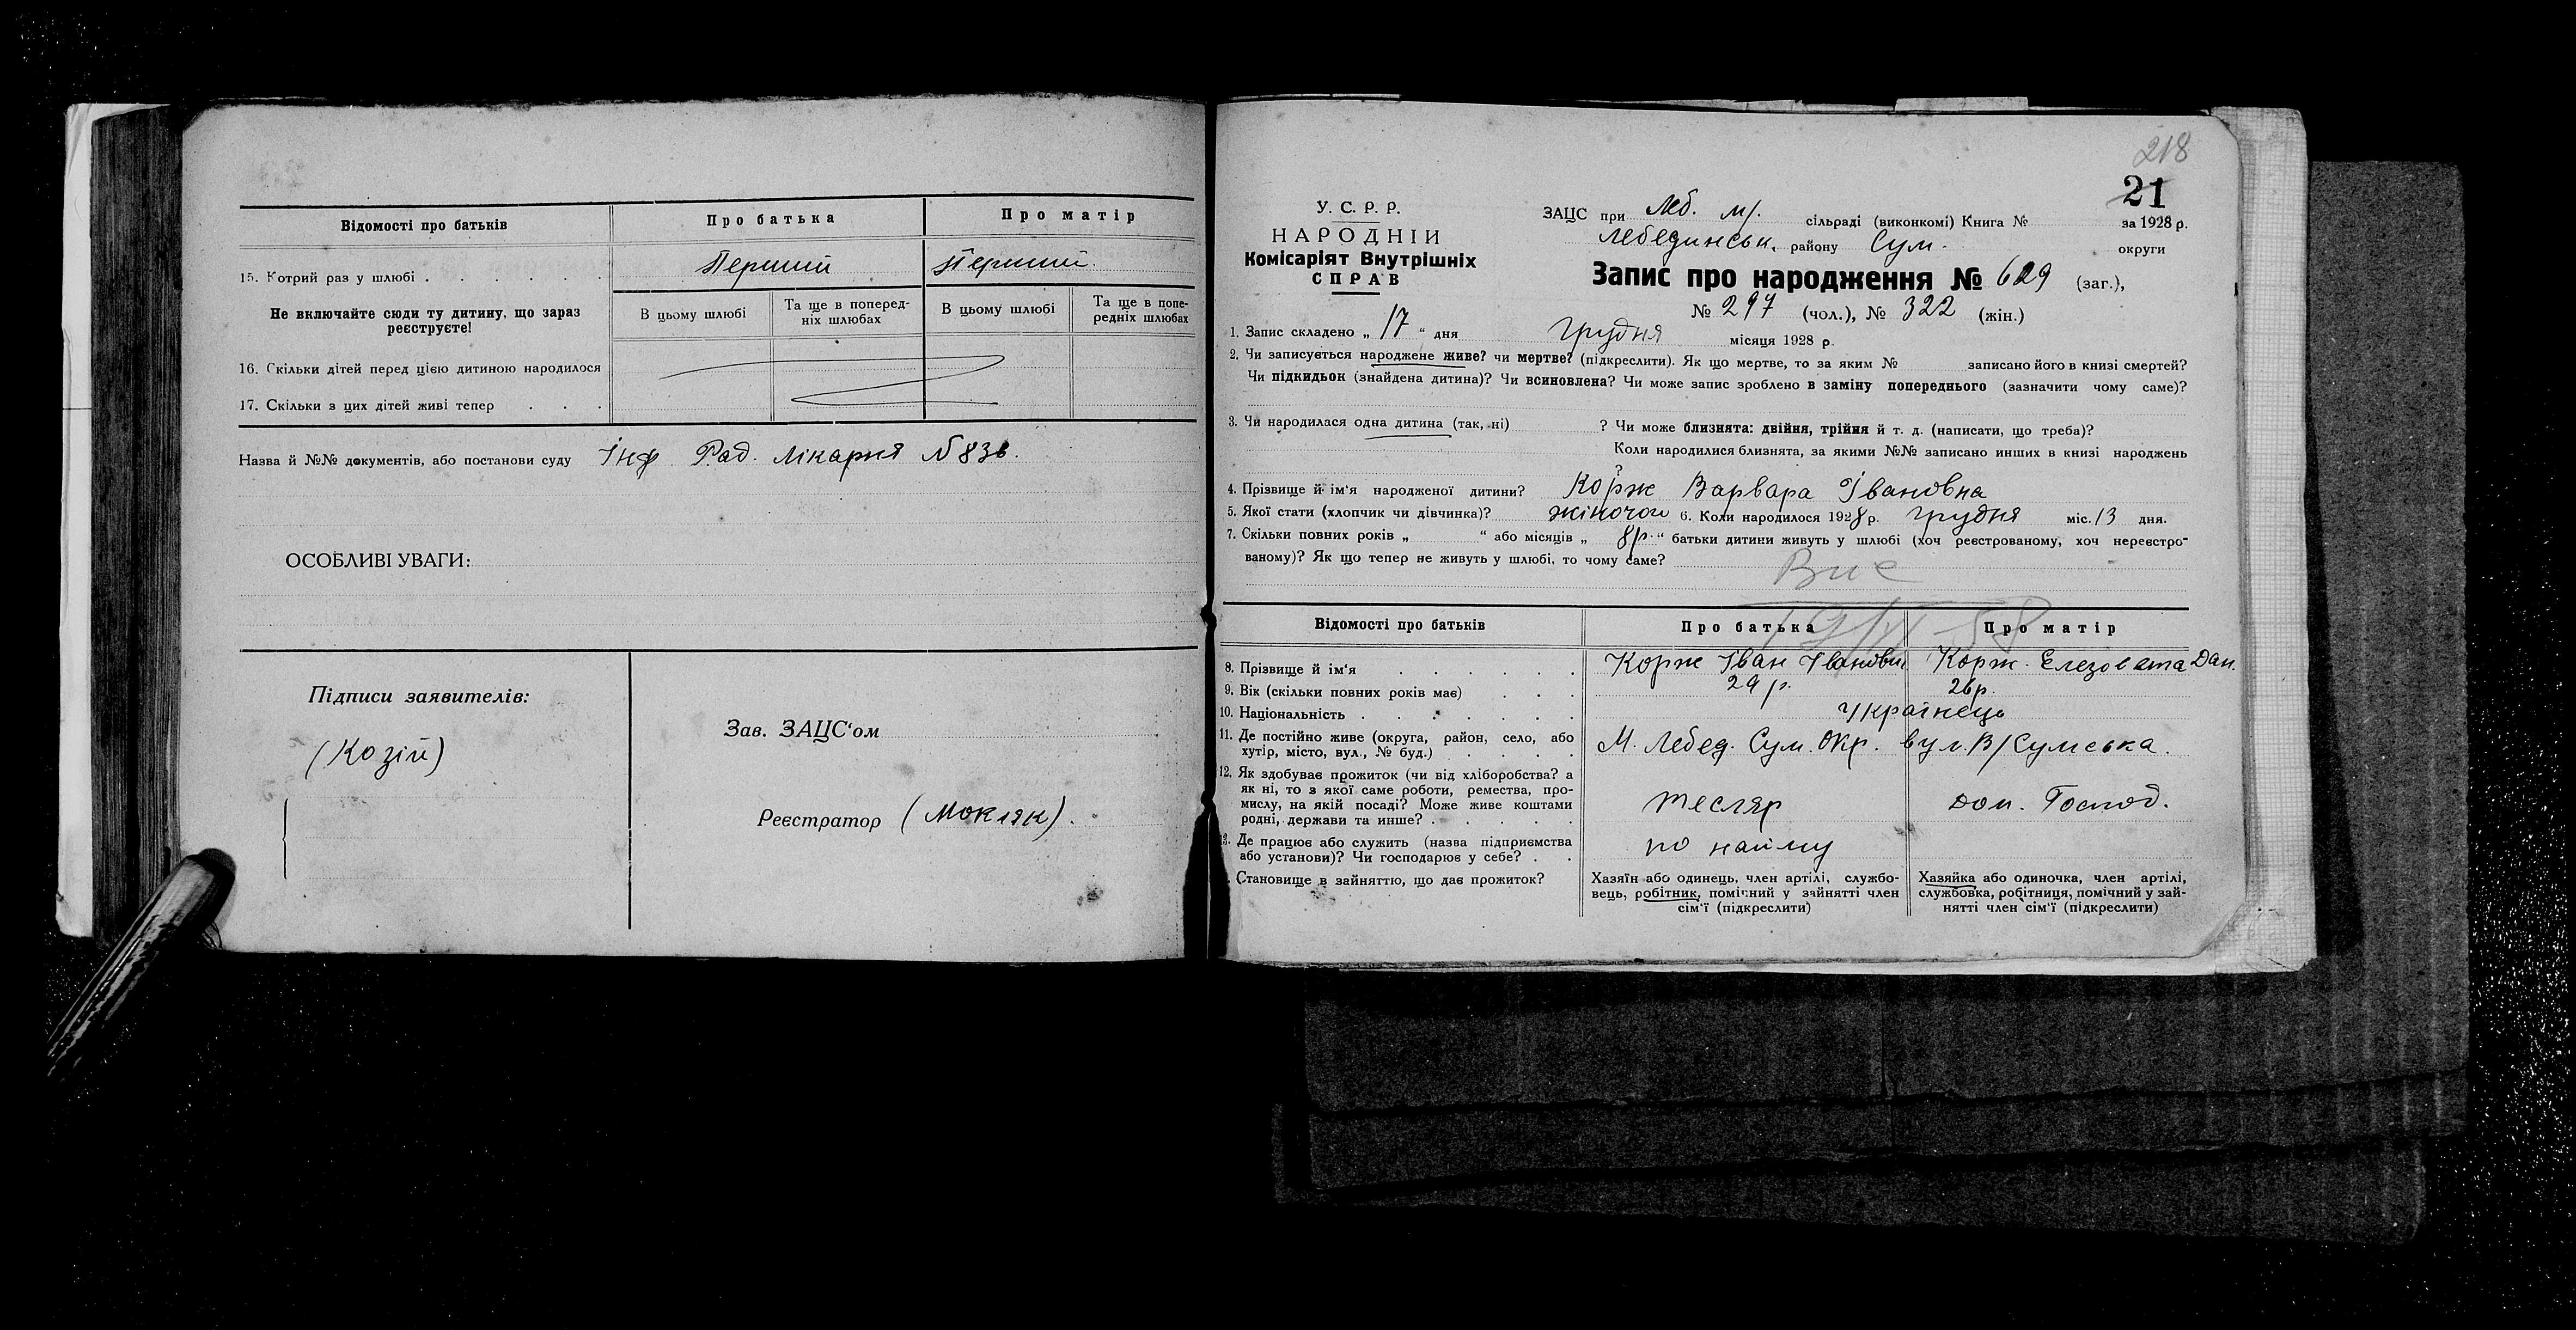 Відомості про батьків
Про батька
Про матір
15. Котрий раз у шлюбі . . . . . .
Перший
Перший.
Не включайте сюди ту дитину, що зараз
реєструєте!
В цьому шлюбі
Та ще в поперед-
ніх шлюбах
В цьому шлюбі
Та ще в попе-
редніх шлюбах
16. Скільки дітей перед цією дитиною народилося
17. Скільки з цих дітей живі тепер . . .
Назва й №№ документів, або постанови суду Інф Рад. лікарня N 836.
ОСОБЛИВІ УВАГИ:
Підписи заявителів:
(Козій)
Зав. ЗАЦС‘ом
Реєстратор (Мокляк).
218
21
У. С. Р. Р.
НАРОДНІЙ
Комісаріят Внутрішніх
СПРАВ
ЗАЦС при Леб. м/. сільраді (виконкомі) Книга № за 1928 р.
Лебединськ. району Сум. округи
Запис про народження № 629 (заг.),
№ 297 (чол.), № 322 (жін.)
1. Запис складено „ 17 “ дня грудня місяця 1928 р.
2. Чи записується народжене живе? чи мертве? (підкреслити). Як що мертве, то за яким № записано його в книзі смертей?
Чи підкидьок (знайдена дитина)? Чи всиновлена? Чи може запис зроблено в заміну попереднього (зазначити чому саме)?
3. Чи народилася одна дитина (так, ні) ? Чи може близнята: двійня, трійня й т. д. (написати, що треба)?
Коли народилися близнята, за якими №№ записано инших в книзі народжень
?
4. Прізвище й ім‘я народженої дитини? Корж Варвара Івановна
5. Якої стати (хлопчик чи дівчинка)? жіночої 6. Коли народилося 1928 р. грудня міс. 13 дня.
7. Скільки повних років „ “ або місяців „ 8р. “ батьки дитини живуть у шлюбі (хоч реєстрованому, хоч нереєстро-
ваному)? Як що тепер не живуть у шлюбі, то чому саме?
Відомості про батьків
Про батька
Про матір
8. Прізвище й ім‘я . . . . . .
Корж Іван Іванови
Корж. Елезовета Дан.
9. Вік (скільки повних років має) . . .
29 р.
26р.
10. Національність . . . . . . .
Українець
11. Де постійно живе (округа, район, село, або
хутір, місто, вул., № буд.) . . . .
М. Лебед. Сум. Окр. вул. В/Сумська.
12. Як здобуває прожиток (чи від хліборобства? а
як ні, то з якої саме роботи, ремества, про-
мислу, на якій посаді? Може живе коштами
родні, держави та инше? . . . . .
тесляр
Дом. Господ.
13. Де працює або служить (назва підприємства
або установи)? Чи господарює у себе? . .
по найму
. Становище в зайняттю, що дає прожиток?
Хазяїн або одинець, член артілі, службо-
вець, робітник, помічний у зайнятті член
сім‘ї (підкреслити)
Хазяйка або одиночка, член артілі,
службовка, робітниця, помічний у зай-
нятті член сім‘ї (підкреслити)